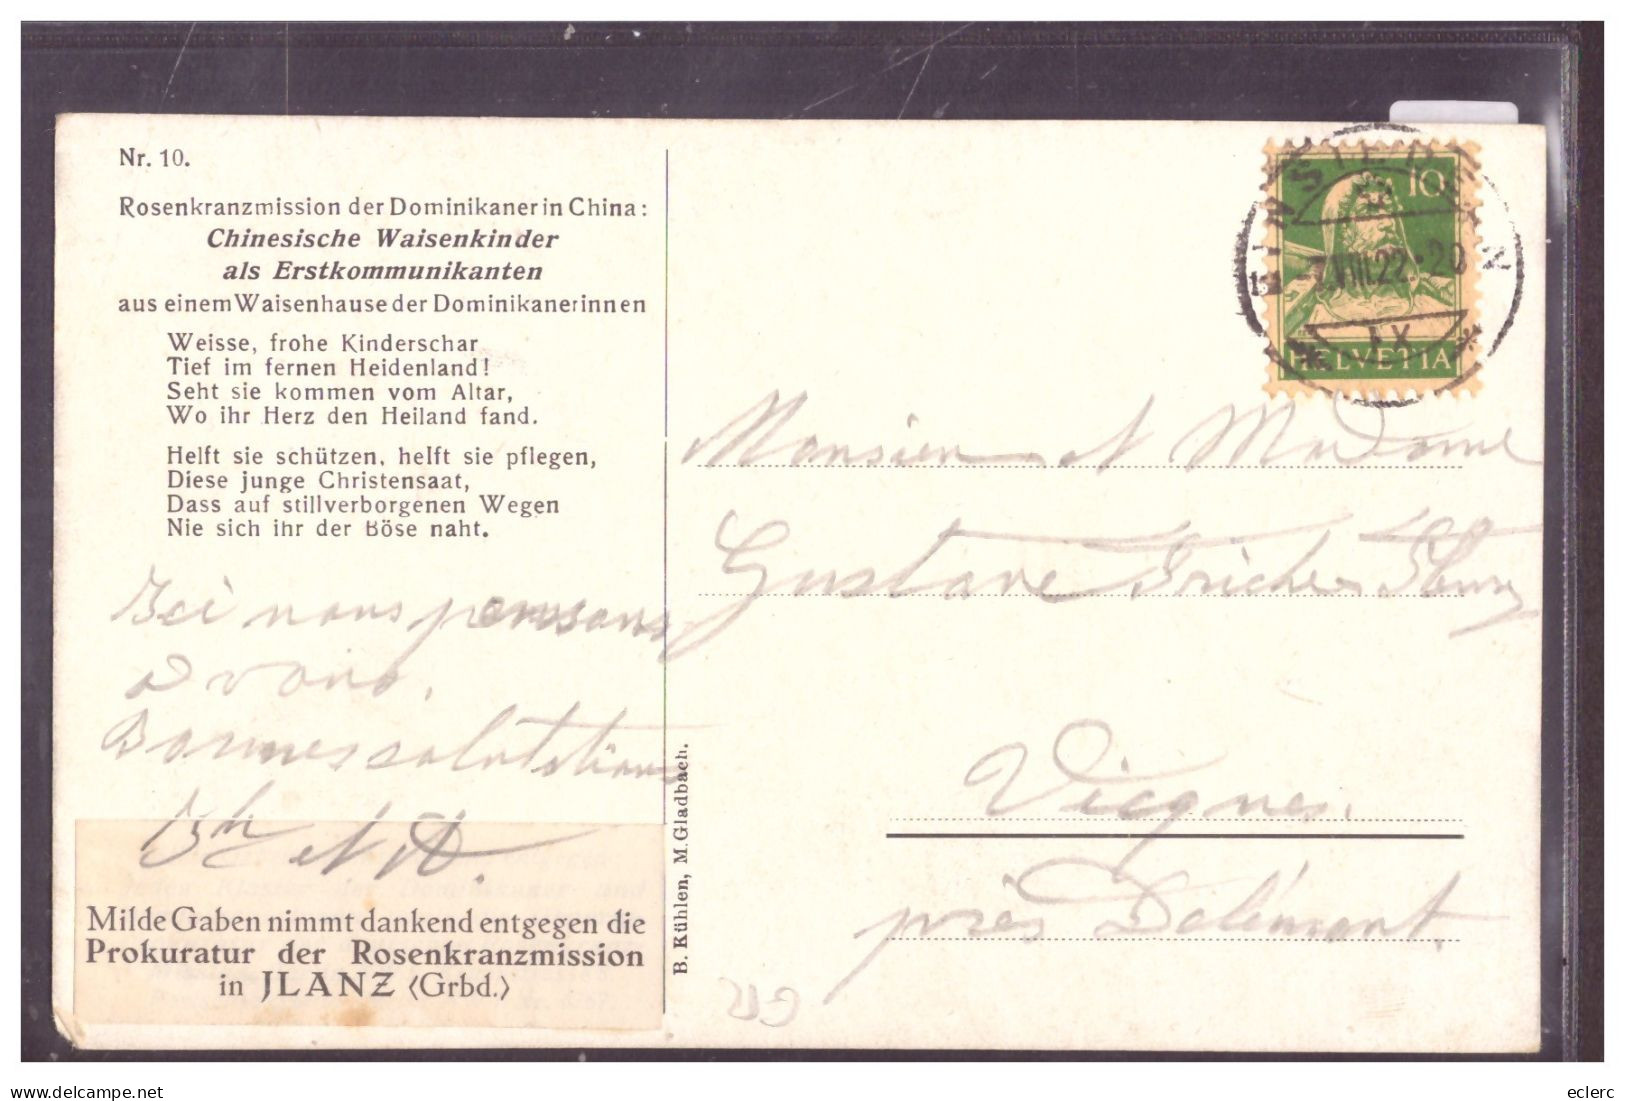 Nr. 10.
Rosenkranzmission der Dominikaner in China:
Chinesische Waisenkinder
als Erstkommunikanten
aus einem Waisenhause der Dominikanerinnen
Weisse, frohe Kinderschar
Tief im fernen Heidenland!
Seht sie kommen vom Altar,
Wo ihr Herz den Heiland fand.
Helft sie schützen, helft sie pflegen,
Diese junge Christensaat,
Dass auf stillverborgenen Wegen
Nie sich ihr der Böse naht.
Ici nous pensons
à vous.
Bonnes salutations
et
Milde Gaben nimmt dankend entgegen die
Prokuratur der Rosenkranzmission
in JLANZ (Grbd.)
B. Kühlen, M. Gladbach.
EINSIEDELN
VIII.22-20
10
HELVETIA
Monsieur et Madame
Gustave
Vicques.
près Delémont.
GR
www.delcampe.net
eclerc